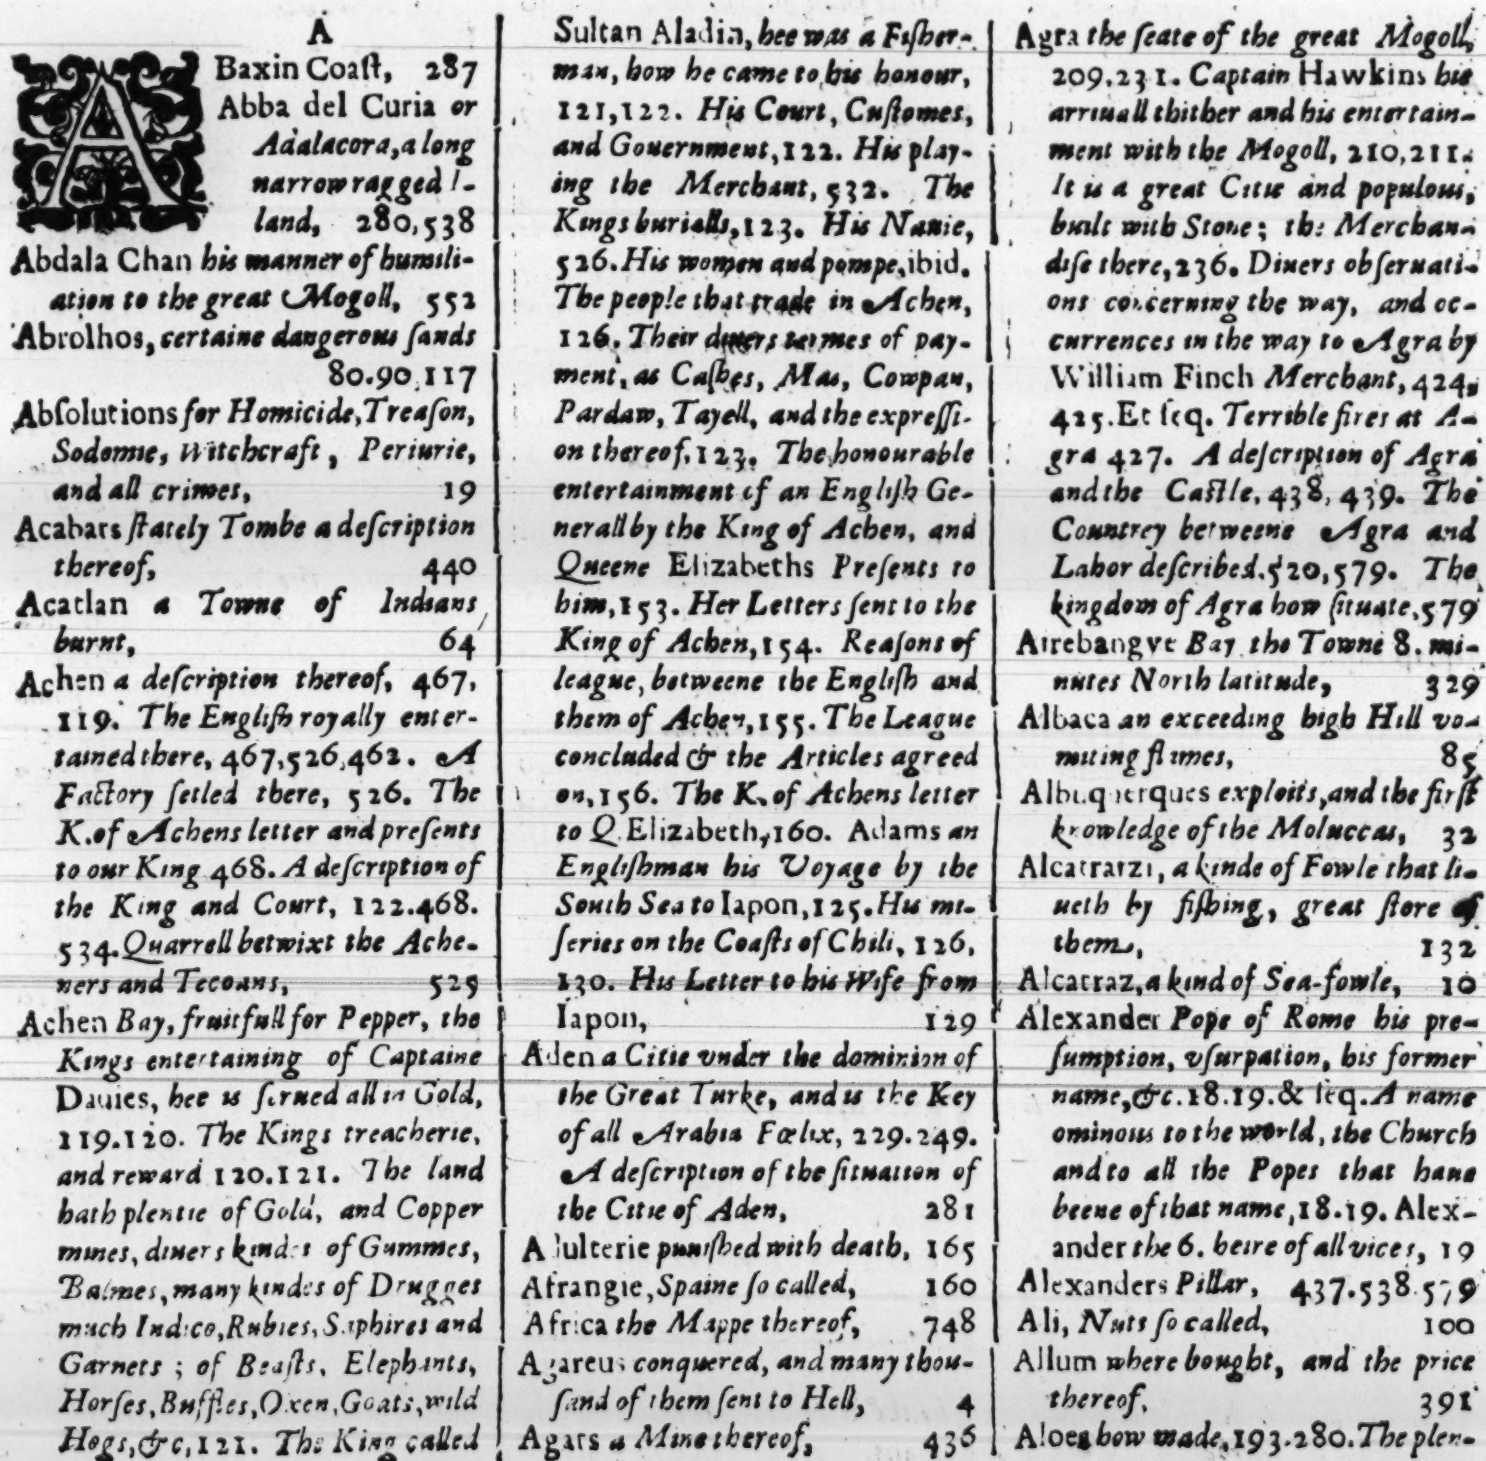 A
ABaxin Coaſt, 287
Abba del Curia or
Adalacora, a long
narrow ragged I-
land, 280,538
Abdala Chan his manner of humili-
ation to the great Mogoll, 552
Abrolhos, certaine dangerous ſands
80.90.117
Abſolutions for Homicide, Treaſon,
Sodomie, Witchcraft, Periurie,
and all crimes, 19
Acabars ſtately Tombe a deſcription
thereof, 440
Acatlan a Towne of Indians
burnt, 64
Achen a deſcription thereof, 467,
119. The Engliſh royally enter-
tained there, 467,526,462. A
Factory ſetled there, 526. The
K. of Achens letter and preſents
to our King 468. A deſcription of
the King and Court, 122.468.
534. Quarrell betwixt the Ache-
ners and Tecoans, 525
Achen Bay, fruitfull for Pepper, the
Kings entertaining of Captaine
Dauies, hee is ſerued all in Gold,
119.120. The Kings treacherie,
and reward 120.121. The land
hath plentie of Gold, and Copper
mines, diuers kindes of Gummes,
Balmes, many kindes of Drugges
much Indico, Rubies, Saphires and
Garnets ; of Beaſts, Elephants,
Horſes, Buffles, Oxen, Goats, wild
Hogs, &c, 121. The King called
Sultan Aladin, hee was a Fiſher-
man, how he came to his honour,
121,122. His Court, Cuſtomes,
and Gouernment, 122. His play-
ing the Merchant, 532. The
Kings burialls, 123. His Nauie,
526. His women and pompe, ibid.
The people that trade in Achen,
126. Their diuers termes of pay-
ment, as Caſhes, Mas, Cowpan,
Pardaw, Tayell, and the expreſſi-
on thereof, 123. The honourable
entertainment of an Engliſh Ge-
nerall by the King of Achen, and
Queene Elizabeths Preſents to
him, 153. Her Letters ſent to the
King of Achen, 154. Reaſons of
league, betweene the Engliſh and
them of Achen, 155. The League
concluded & the Articles agreed
on, 156. The K. of Achens letter
to Q. Elizabeth, 160. Adams an
Engliſhman his Voyage by the
South Sea to Iapon, 125. His mi-
ſeries on the Coaſts of Chili, 126,
130. His Letter to his Wife from
Iapon, 129
Aden a Citie vnder the dominion of
the Great Turke, and is the Key
of all Arabia Fœlix, 229.249.
A deſcription of the ſituation of
the Citie of Aden, 281
Adulterie puniſhed with death, 165
Afrangie, Spaine ſo called, 160
Africa the Mappe thereof, 748
Agareus conquered, and many thou-
ſand of them ſent to Hell, 4
Agats a Mine thereof, 436
Agra the ſeate of the great Mogoll,
209.231. Captain Hawkins his
arriuall thither and his entertain-
ment with the Mogoll, 210,211.
It is a great Citie and populous,
built with Stone ; the Merchan-
diſe there, 236. Diuers obſeruati-
ons concerning the way, and oc-
currences in the way to Agra by
William Finch Merchant, 424,
425. Et ſeq. Terrible fires at A-
gra 427. A deſcription of Agra
and the Caſtle, 438, 439. The
Countrey betweene Agra and
Lahor deſcribed. 520,579. The
kingdom of Agra how ſituate, 579
Airebangye Bay the Towne 8. mi-
nutes North latitude, 329
Albaca an exceeding high Hill vo-
miting flames, 85
Albuquerques exploits, and the firſt
knowledge of the Moluccas, 32
Alcatrarzi, a kinde of Fowle that li-
ueth by fiſhing, great ſtore of
them, 132
Alcatraz, a kind of Sea-fowle, 10
Alexander Pope of Rome his pre-
ſumption, vſurpation, his former
name, &c. 18.19. & ſeq. A name
ominous to the world, the Church
and to all the Popes that haue
beene of that name, 18.19. Alex-
ander the 6. heire of all vices, 19
Alexanders Pillar, 437.538.579
Ali, Nuts ſo called, 100
Allum where bought, and the price
thereof, 391
Aloes how made, 193.280. The plen-